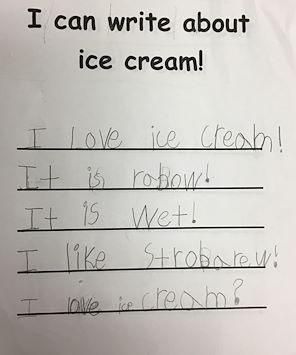 I can write about
ice cream!
I Love ice cream!
It is robow!
It is wet!
I like Strobarew!
I love ice cream?